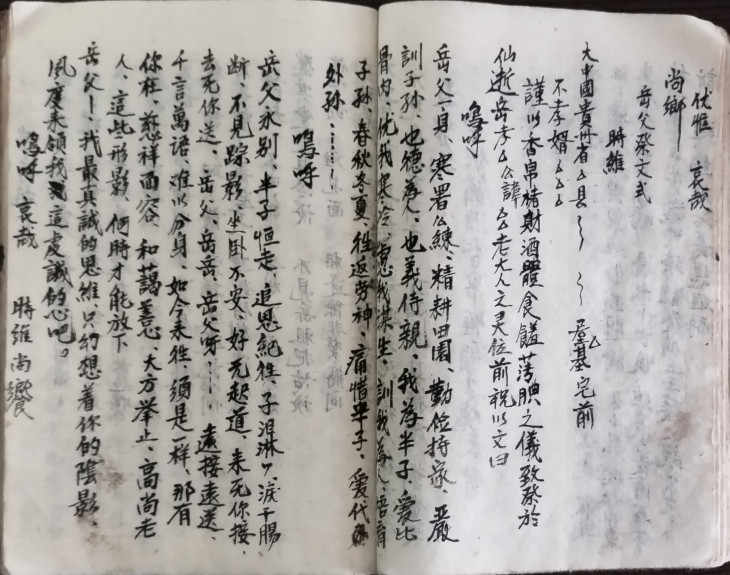 伏惟 哀哉
尚鄉
岳父祭文式
時維
大中國貴州省厶具 墓基宅前
不孝婿厶厶厶
謹以香帛楮財酒醴食饈薄腆之儀致祭於
仙逝岳考厶公諱厶厶老大人之灵位前祝以文曰
嗚呼
岳父一身、寒署公練、精耕田園、勤俭持家、嚴
訓子孫、也德為人、也義侍親、我為半子、愛比
骨肉、忧我寒冷、慮我謀生、訓我為人、
子孫、春秋冬夏、往返劳神、痛惜半子、愛代
外孫、……
嗚呼
岳父永别、半子恒走、追思紀往、子泪淋々淚千腸
断、不見踪影、坐卧不安、好无起道、来死你接、
去死你送、岳父、岳岳、岳父呀…、遠接遠送、
千言萬語、难以分身、如今来往、須是一样、那有
你在、慈祥面容、和藹善意、大方举止、高尚老
人、這些形影、何時才能放下
岳父—、我最真誠的思維只幻想着你的陰影、
風度来領我這虔誠的心吧。
嗚呼 哀哉 時維 尚饗